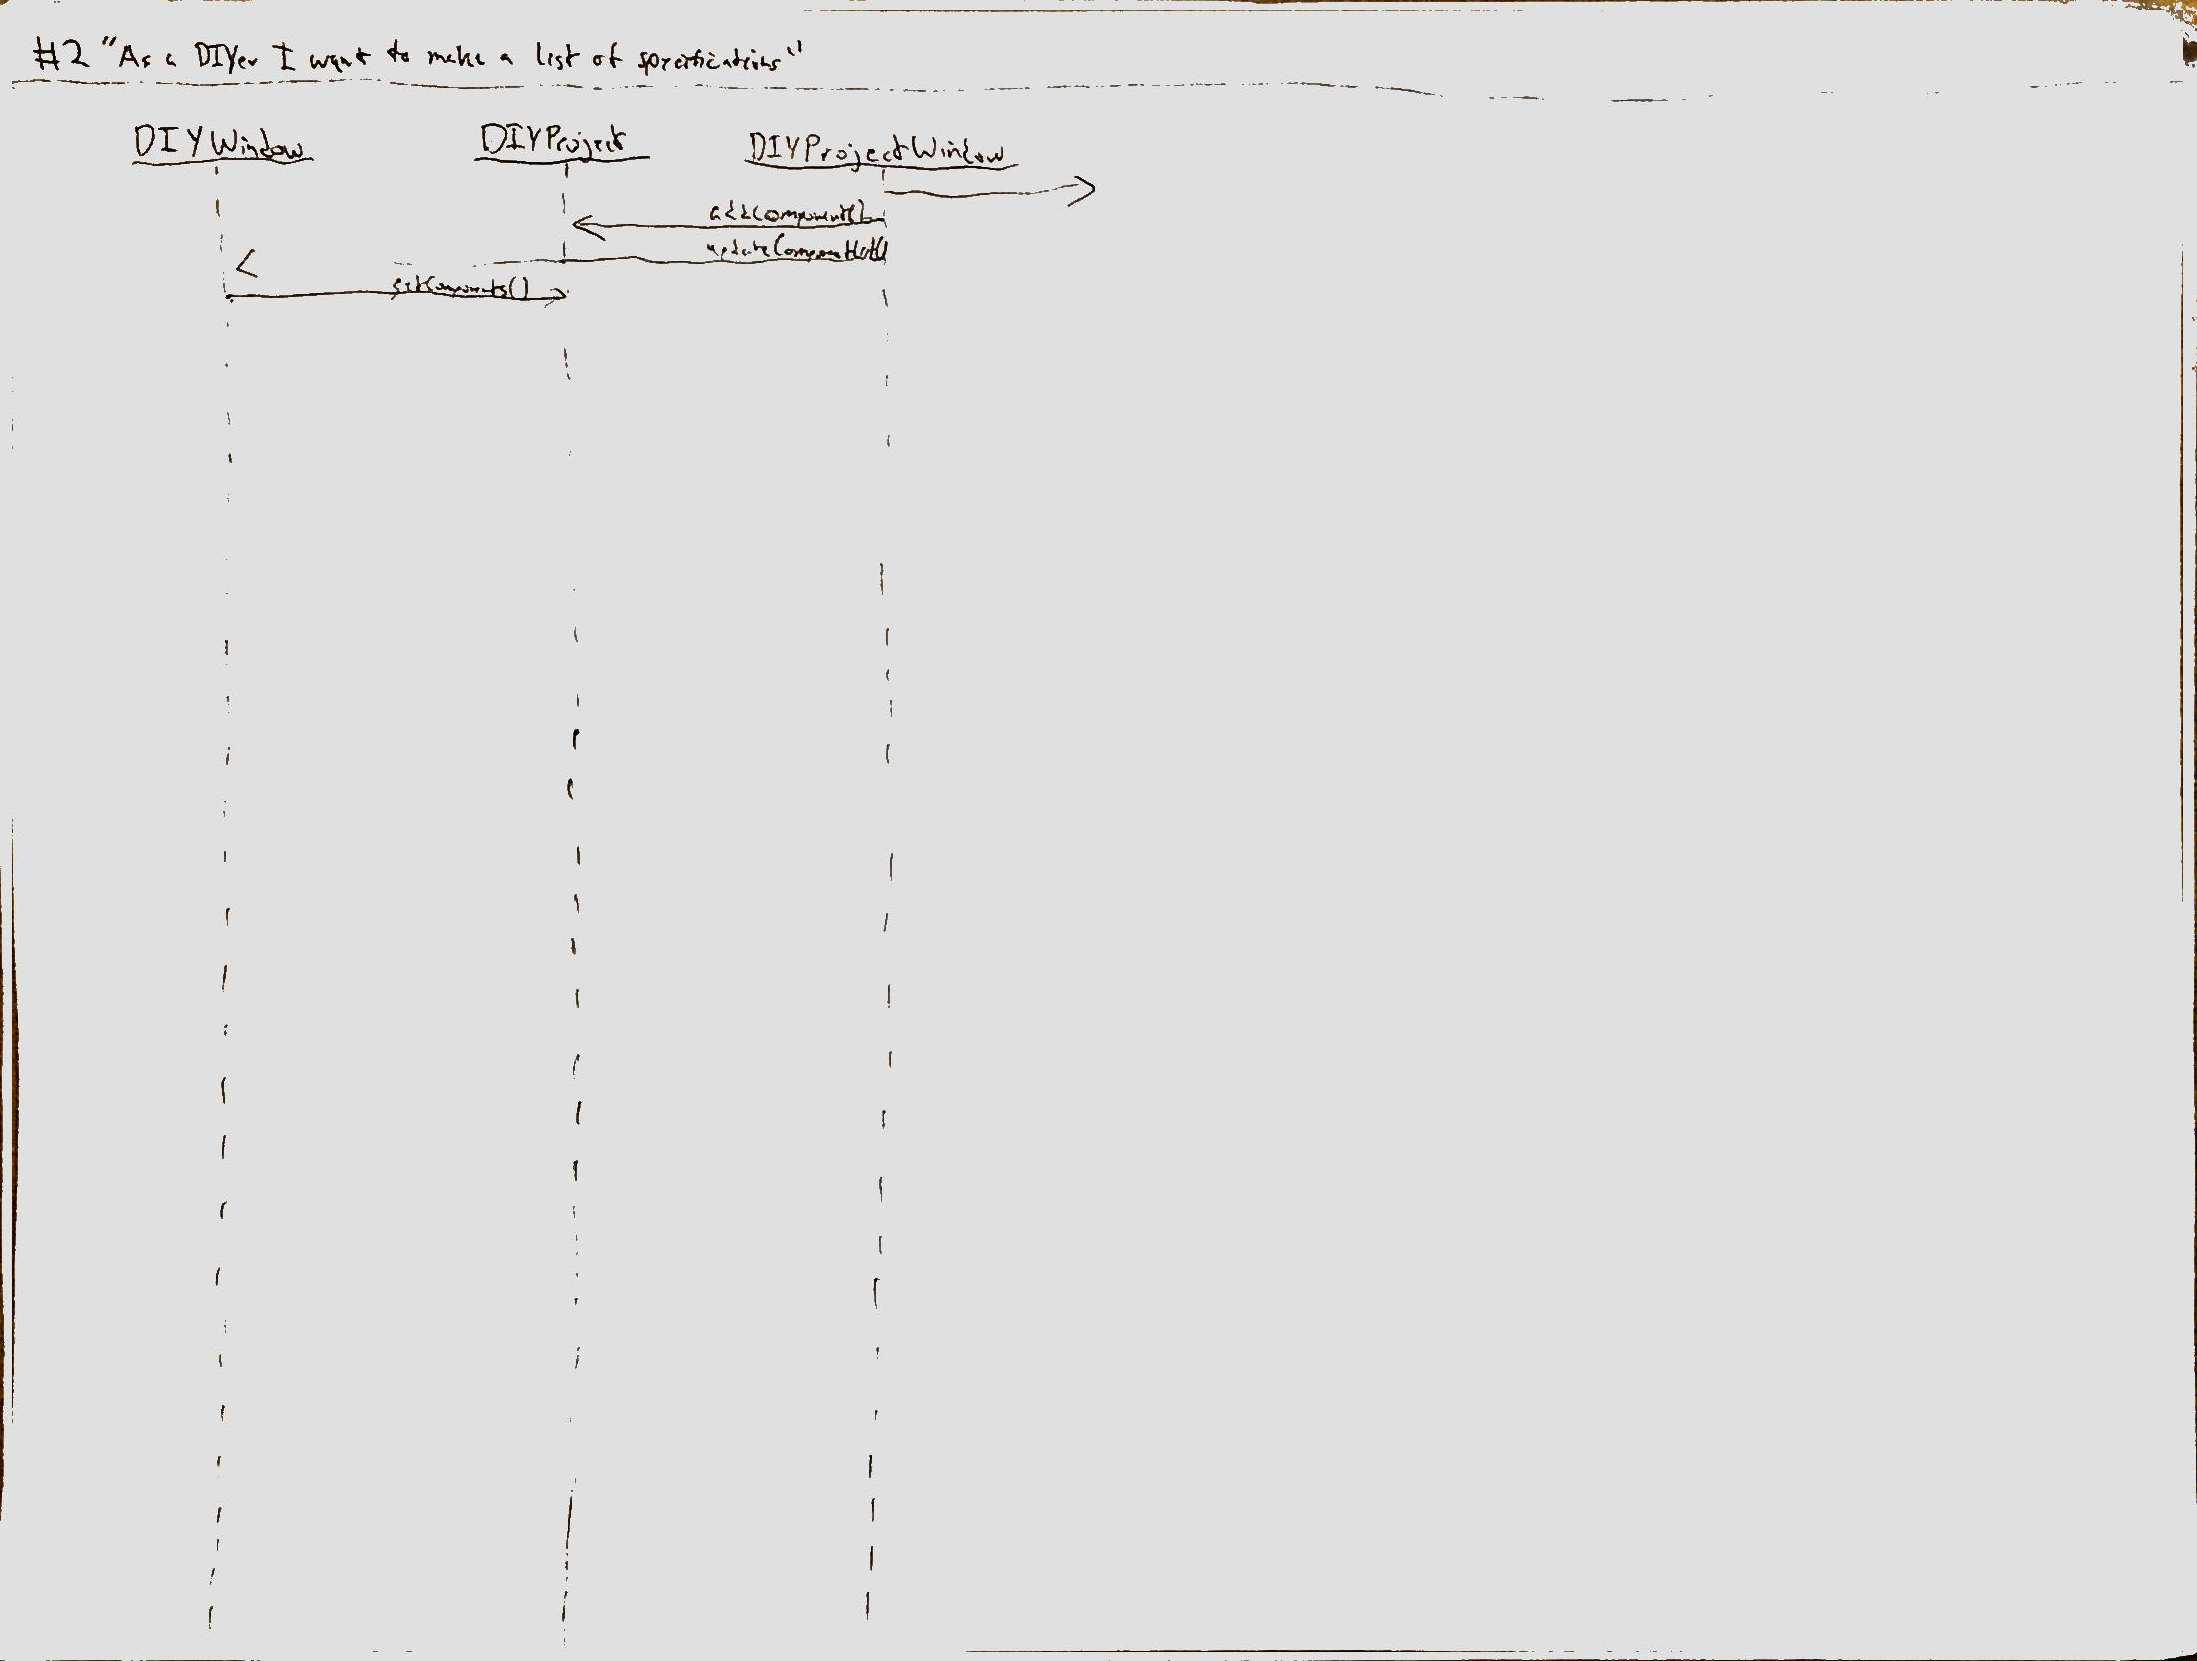 #2 "As a DIYer I want to make a list of specifications"
DIYWindow DIYProject DIYProjectWindow
addComponent()
getComponents()